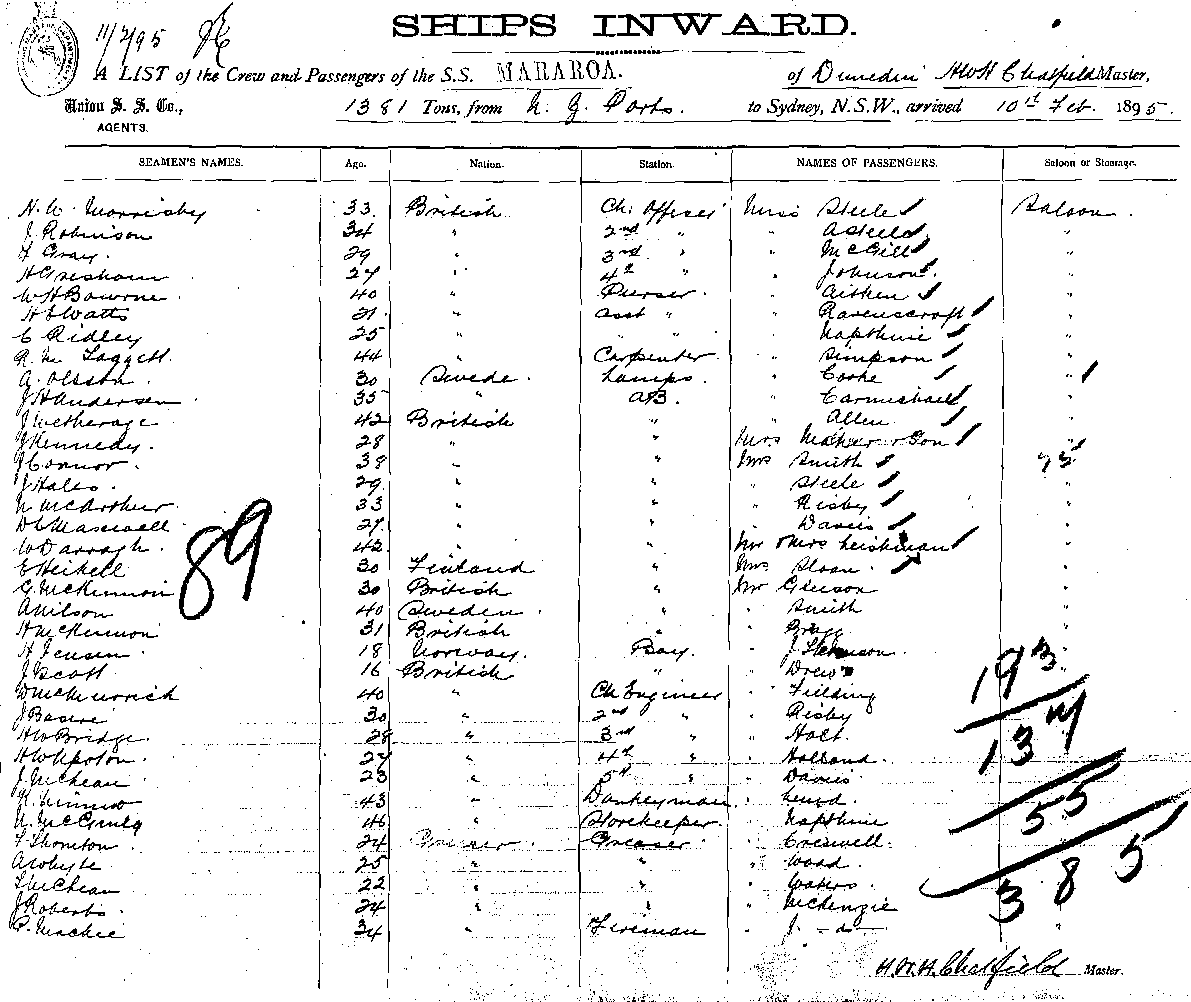 SHIPS INWARD.
11/2/95
A LIST of the Crew and Passengers of the S.S. MARAROA. of Dunedin H W H Chatfield Master,
Union S. S. Co., AGENTS. 1381 Tons, from N. Z. Ports. to Sydney, N.S.W., arrived 10th Feb. 1895.
SEAMEN'S NAMES. Age. Nation. Station. NAMES OF PASSENGERS. Saloon or Steerage.
H. W. Morrisby 33. British Ch. Officer Miss Steele Saloon.
J. Robinson 34 " 2nd " " A Steele "
F Gray. 29 " 3rd. " " McGill "
H Gresham 27 " 4th " " Johnson "
W H Bourne 40 " Purser. " Aitken "
H E Watts 21 " Asst " " Ravenscroft "
C Ridley 25 " " Napthine "
R. M. Taggett. 44 " Carpenter " Simpson "
A. Olsson. 30 Swede. Lamps. " Cooke "
J H Andersen 35 " AB. " Carmichael "
J Wetherage 42 British " " Allen "
J Kennedy. 28 " " Mrs & Son "
J Connor. 38 " " Mrs Smith
J Hales 29 " " " Steele "
N McArthur 33 " " " Risby "
D C Maxwell 27 " " " Davis "
W Darragh. 42 " " Mr & Mrs Leishman "
E Heikell 30 Finland " Mrs Sloan "
G. McKinnon 30 British " Mr Gleeson "
A Nilson 40 Sweden " " Smith "
H McKinnon 31 British " "
H Jensen 18 Norway. Boy. " J.
J. Scott 16 British " " Drew
W McMurrich 40 " Ch Engineer " Fielding
J Basire 30 " 2nd " " Risby
H W Bridge 28 " 3rd " " Holt
H W Upton. 27 " 4th " " Holland
J. McLean 23 " 5th " " Davies
43 " Donkeyman "
46 " Storekeeper " Napthine
F Thornton 24 Greaser " Creswell.
A Whyte 25 " " " Wood
McLean 22 " " " Waters
J. Roberts 24 " " " McKenzie
P. Mackie 34 " Fireman " J. - do -
89
193
137
55
385
H. W. H. Chatfield Master.